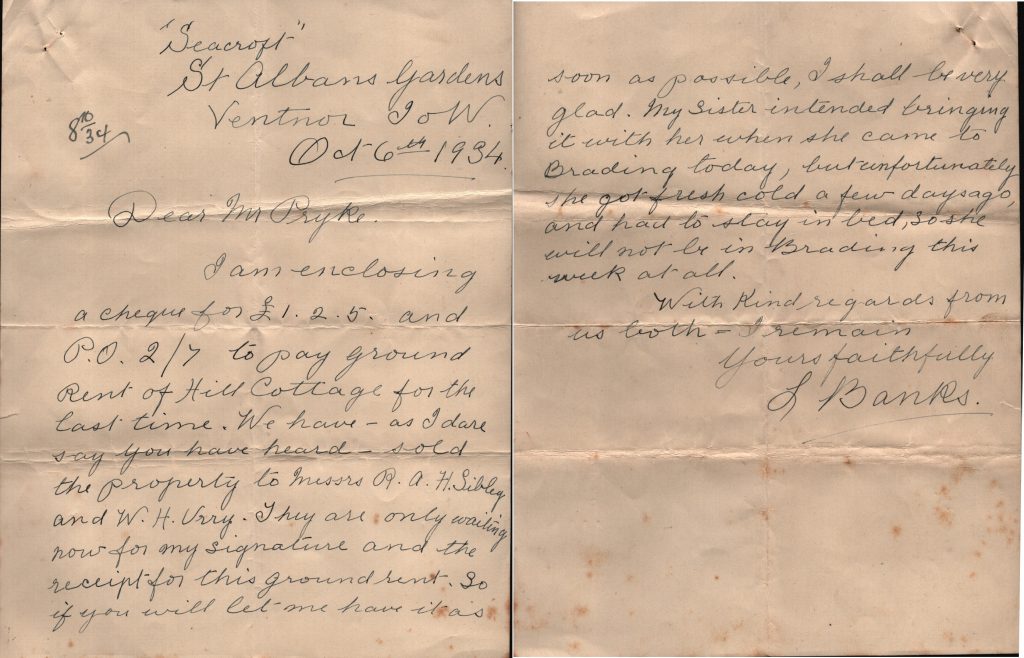 "Seacroft"
St Albans Gardens
Ventnor I o W.
8 10/34
Oct 6th 1934.
Dear Mr Pryke.
I am enclosing
a cheque for £1. 2. 5. and
P.O. 2/7 to pay ground
Rent of Hill Cottage for the
last time. We have – as I dare
say you have heard – sold
the property to Messrs R. A. H. Sibley
and W. H. Urry. They are only waiting
now for my signature and the
receipt for this ground rent. So
if you will let me have it as
soon as possible, I shall be very
glad. My Sister intended bringing
it with her when she came to
Brading today, but unfortunately
she got fresh cold a few days ago,
and had to stay in bed, so she
will not be in Brading this
week at all.
With Kind regards from
us both – I remain
Yours faithfully
L Banks.